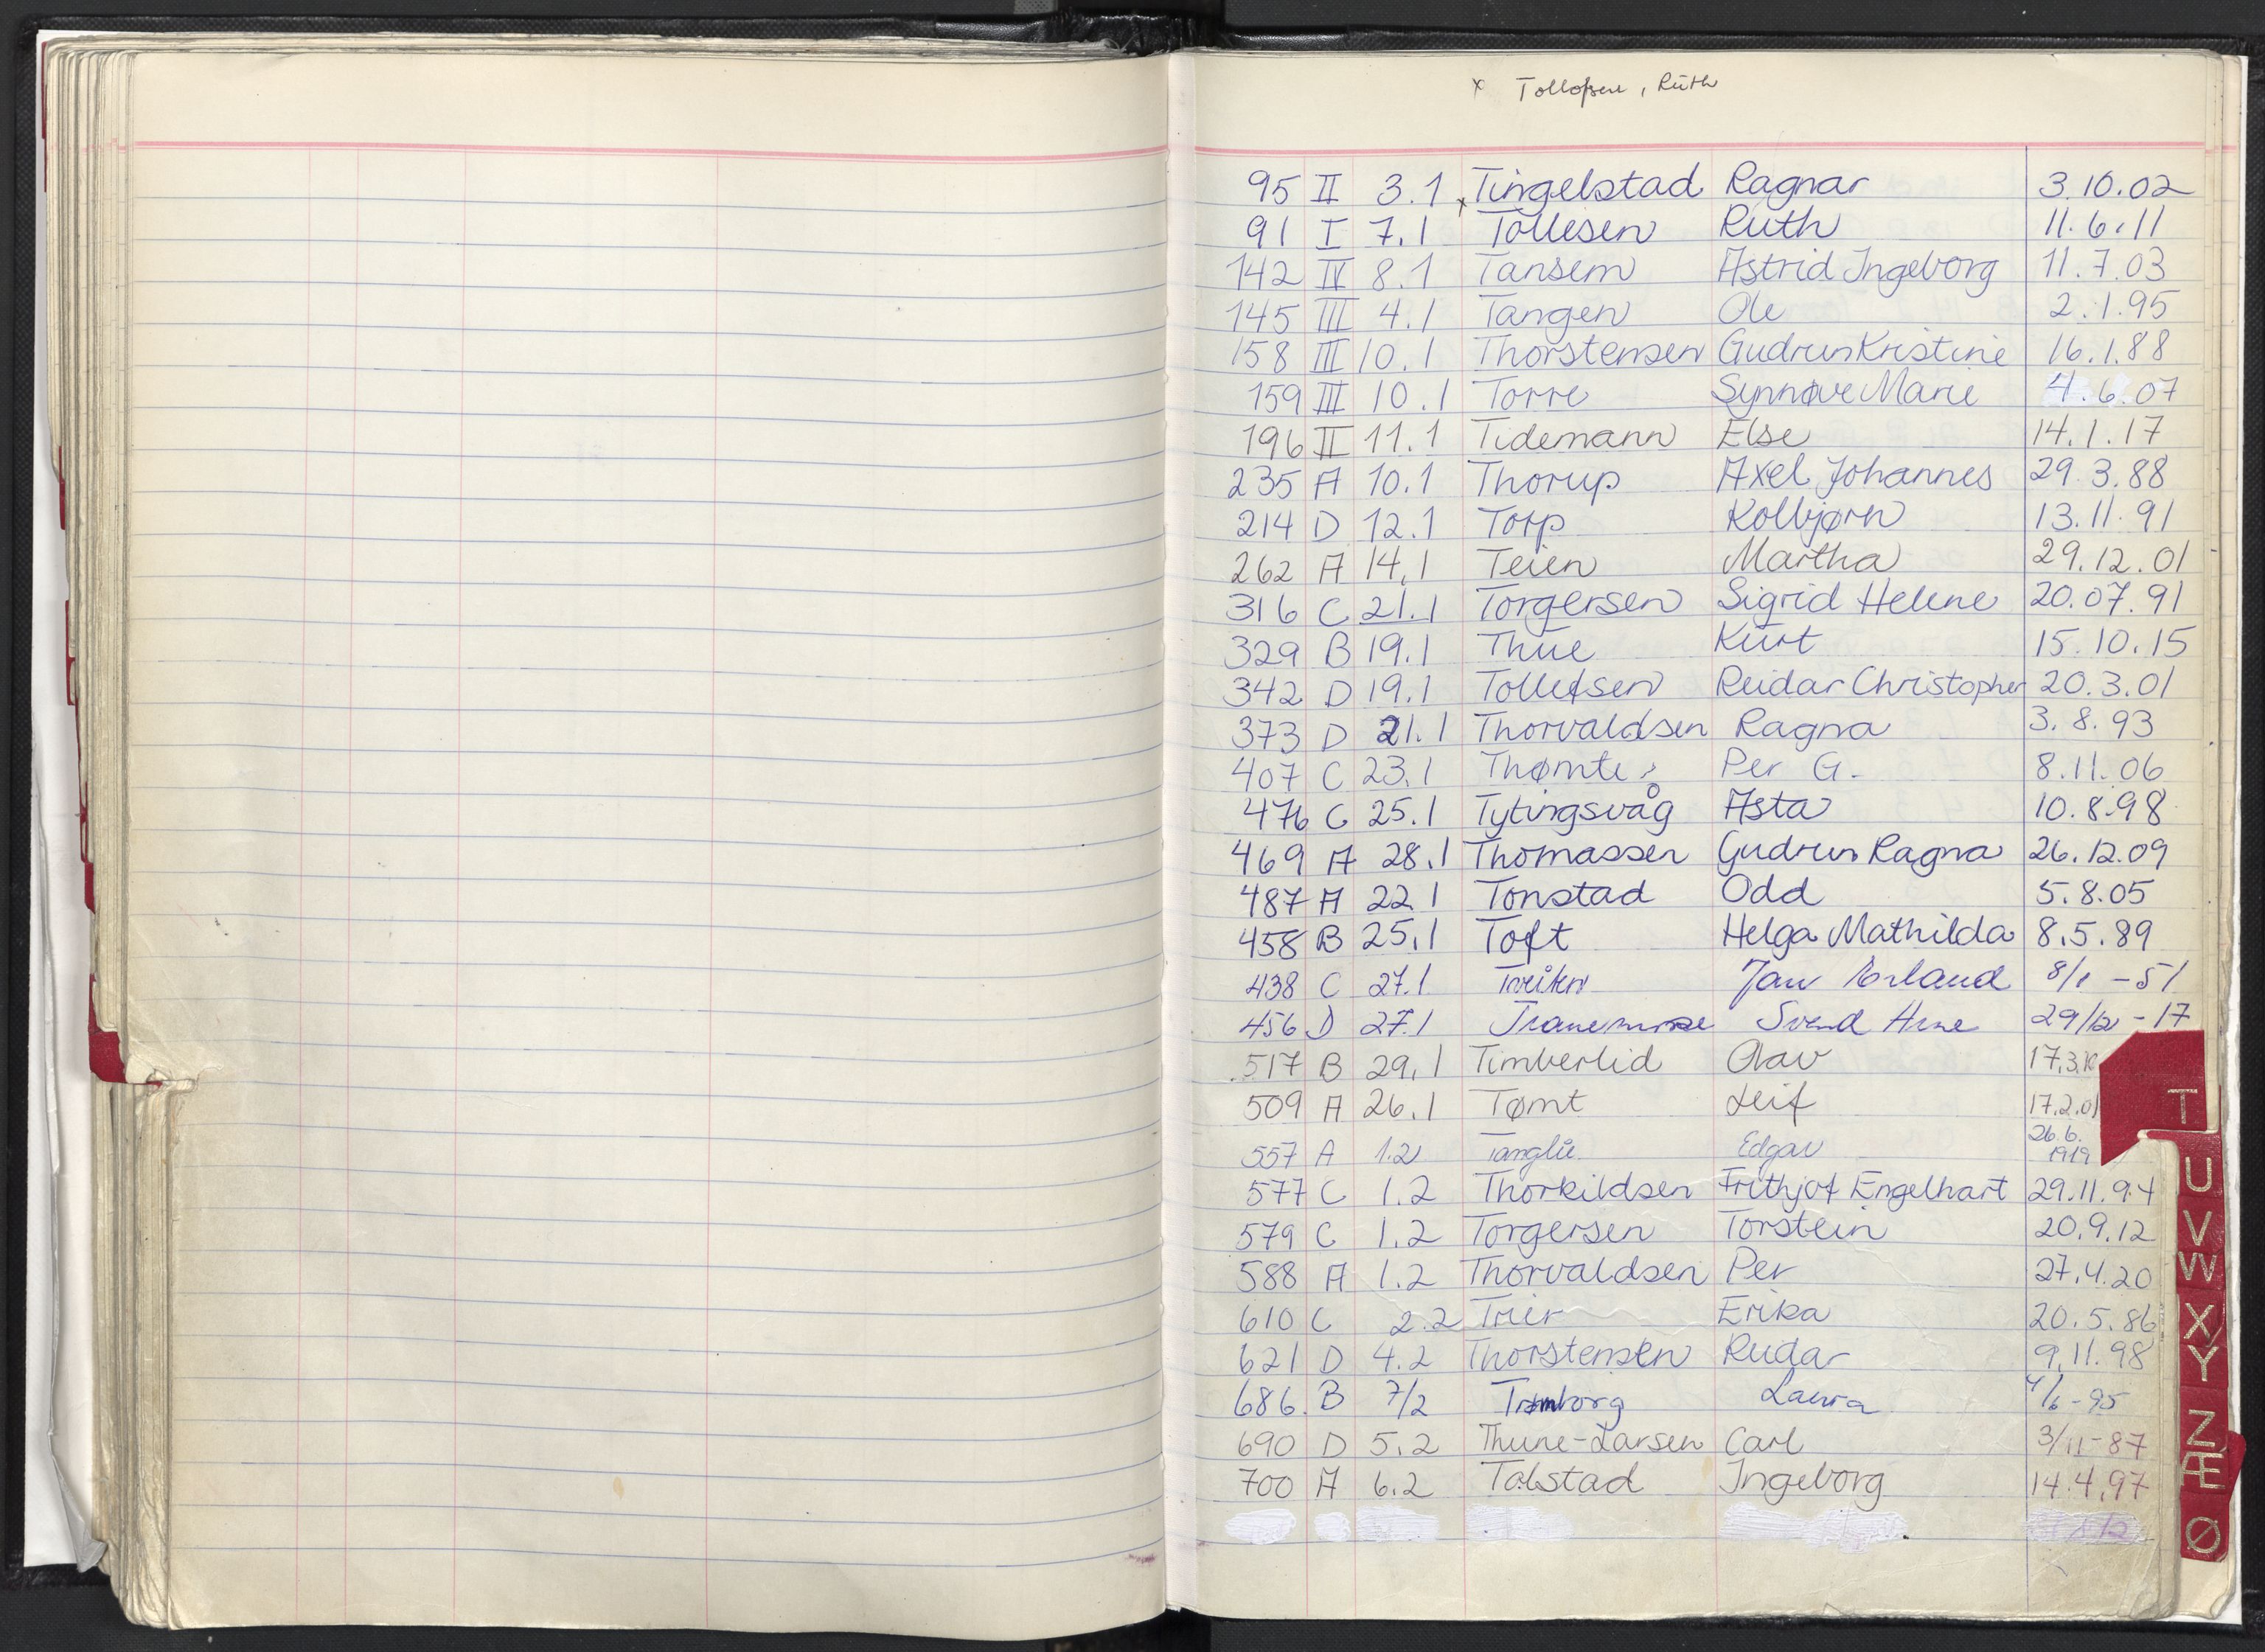 x Tollofsen, Ruth
95 II 3.1 Tingelstad Ragnar 3.10.02
91 I 7.1 x Tollesen Ruth 11.6.11
142 IV 8.1 Tansem Astrid Ingeborg 11.7.03
145 III 4.1 Tangen Ole 2.1.95
158 III 10.1 Thorstensen Gudrun Kristine 16.1.88
159 III 10.1 Torre Synnøve Marie 4.6.07
196 II 11.1 Tidemann Else 14.1.17
235 A 10.1 Thorup Axel Johannes 29.3.88
214 D 12.1 Torp Kolbjørn 13.11.91
262 A 14.1 Teien Martha 29.12.01
316 C 21.1 Torgersen Sigrid Helene 20.07.91
329 B 19.1 Thue Kurt 15.10.15
342 D 19.1 Tollefsen Reidar Christopher 20.3.01
373 D 21.1 Thorvaldsen Ragna 3.8.93
407 C 23.1 Thømte Per G. 8.11.06
476 C 25.1 Tytingsvåg Asta 10.8.98
469 A 28.1 Thomassen Gudrun Ragna 26.12.09
487 A 22.1 Tonstad Odd 5.8.05
458 B 25.1 Toft Helga Mathilda 8.5.89
438 C 27.1 Jan Erland 8/1 - 51
456 D 27.1 Svend Arne 29/12 - 17
517 B 29.1 Timberlid Olav 17.3.
509 A 26.1 Tømt Leif 17.2.01
557 A 1.2 Tanglie Edgar 26.6.
1919
577 C 1.2 Thorkildsen Frithjof Engelhart 29.11.94
579 C 1.2 Torgersen Torstein 20.9.12
588 A 1.2 Thorvaldsen Per 27.4.20
610 C 2.2 Trier Erika 20.5.86
621 D 4.2 Thorstensen Reidar 9.11.98
686. B 7/2 Tromborg Laura /6 - 95
690 D 5.2 Thune-Larsen Carl 3/11-87
700 A 6.2 Talstad Ingeborg 14.4.97
T
U
V
W
X
Y
Z
Æ
Ø